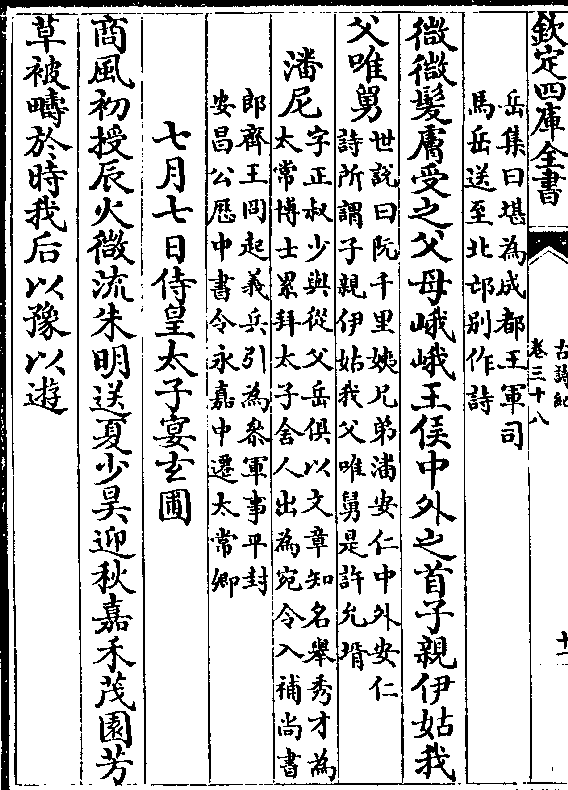 欽定四庫全書
古詩紀
卷三十八
十一
岳集曰堪為成都王軍司
馬岳送至北邙别作詩
微微髮膚受之父母峨峨王侯中外之首子親伊姑我
父唯舅
世說曰阮千里姨兄弟潘安仁中外安仁
詩所謂子親伊姑我父唯舅是許允壻
潘尼
字正叔少與從父岳俱以文章知名舉秀才為
太常博士累拜太子舍人出為宛令入補尚書
郎齊王冏起義兵引為參軍事平封
安昌公歴中書令永嘉中遷太常卿
七月七日侍皇太子宴玄圃
商風初授辰火微流朱明送夏少昊迎秋嘉禾茂園芳
草被疇於時我后以豫以遊